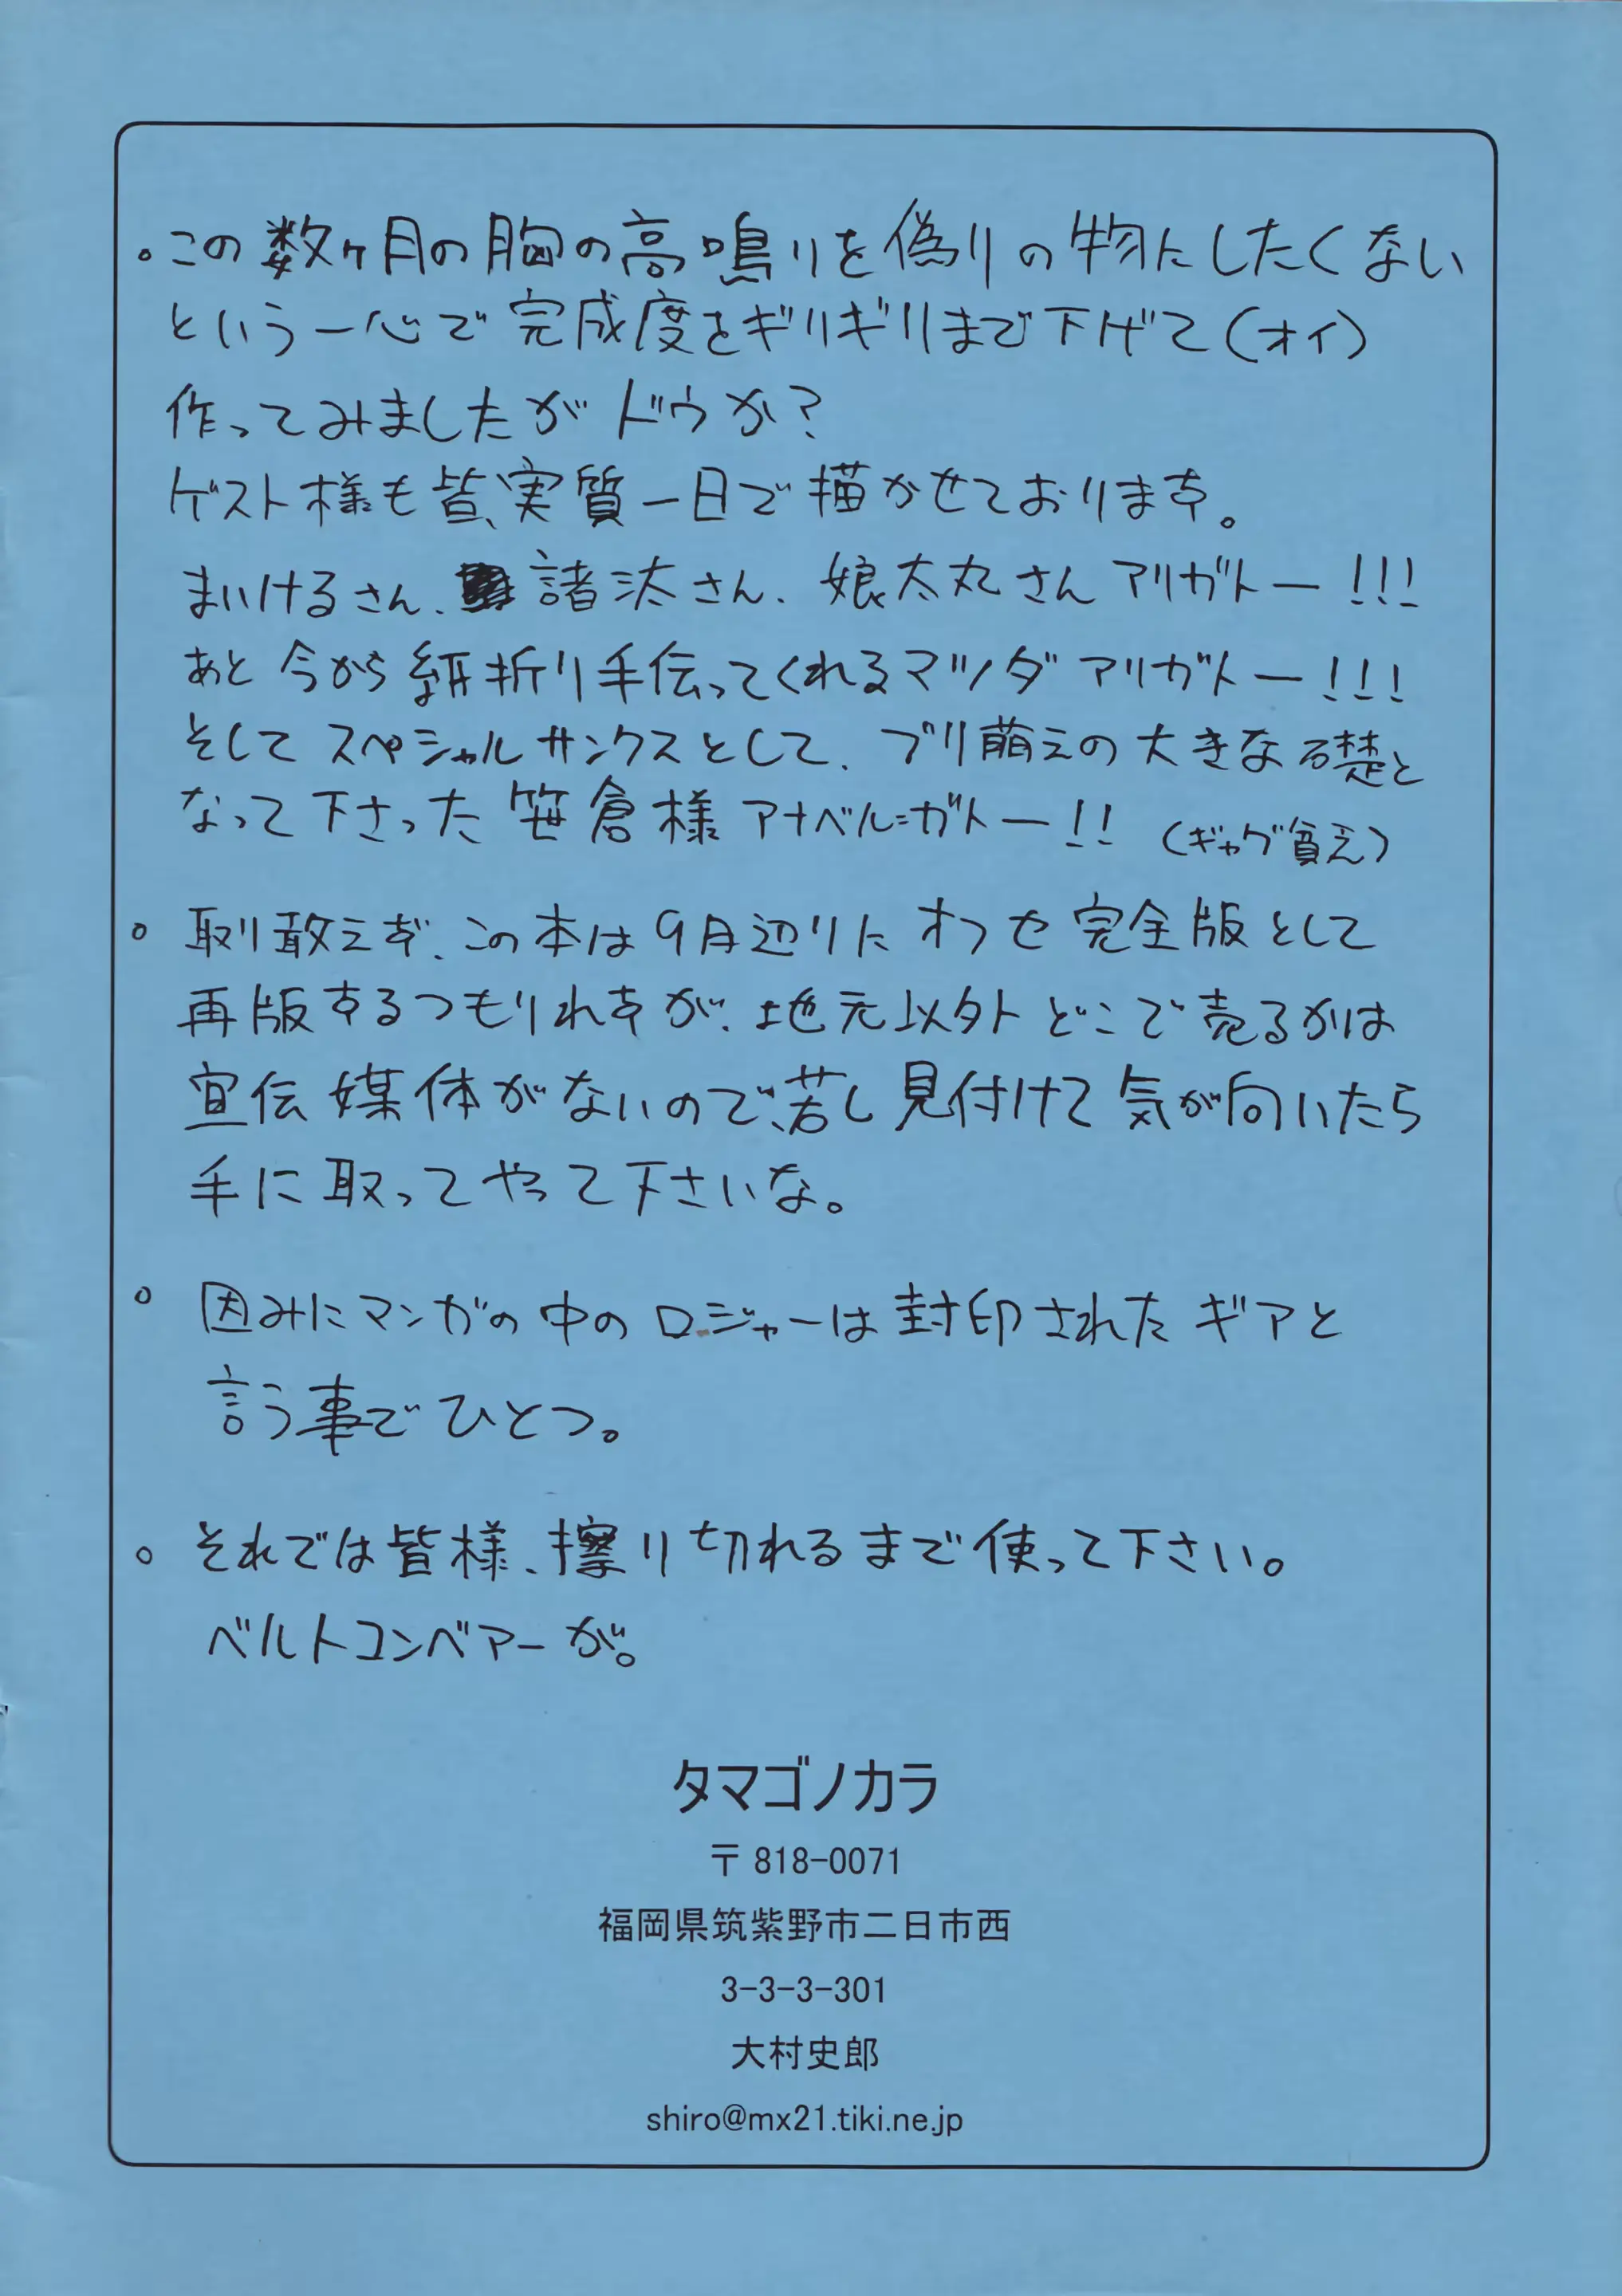 。この数ヶ月の胸の高鳴りを偽りの物にしたくない
という一心で完成度をギリギリまで下げて(オイ)
作ってみましたがドウか?
ゲスト様も皆、実質一日で描かせております。
まいけるさん、諸汰さん、娘太丸さんアリガトー!!!
あと今から紙折り手伝ってくれるマツダアリガトー!!!
そしてスペシャルサンクスとして、ブリ萌えの大きな礎と
なって下さった笹倉様アナベル=ガトー!! (ギャグ貧乏)
。取り敢えず、この本は9月辺りにオフセ完全版として
再版するつもりれすが、地元以外どこで売るかは
宣伝媒体がないので、若し見付けて気が向いたら
手に取ってやって下さいな。
。因みにマンガの中のロジャーは封印されたギアと
言う事でひとつ。
。それでは皆様、擦り切れるまで使って下さい。
ベルトコンベアーが。
タマゴノカラ
〒818-0071
福岡県筑紫野市二日市西
3-3-3-301
大村史郎
shiro@mx21.tiki.ne.jp